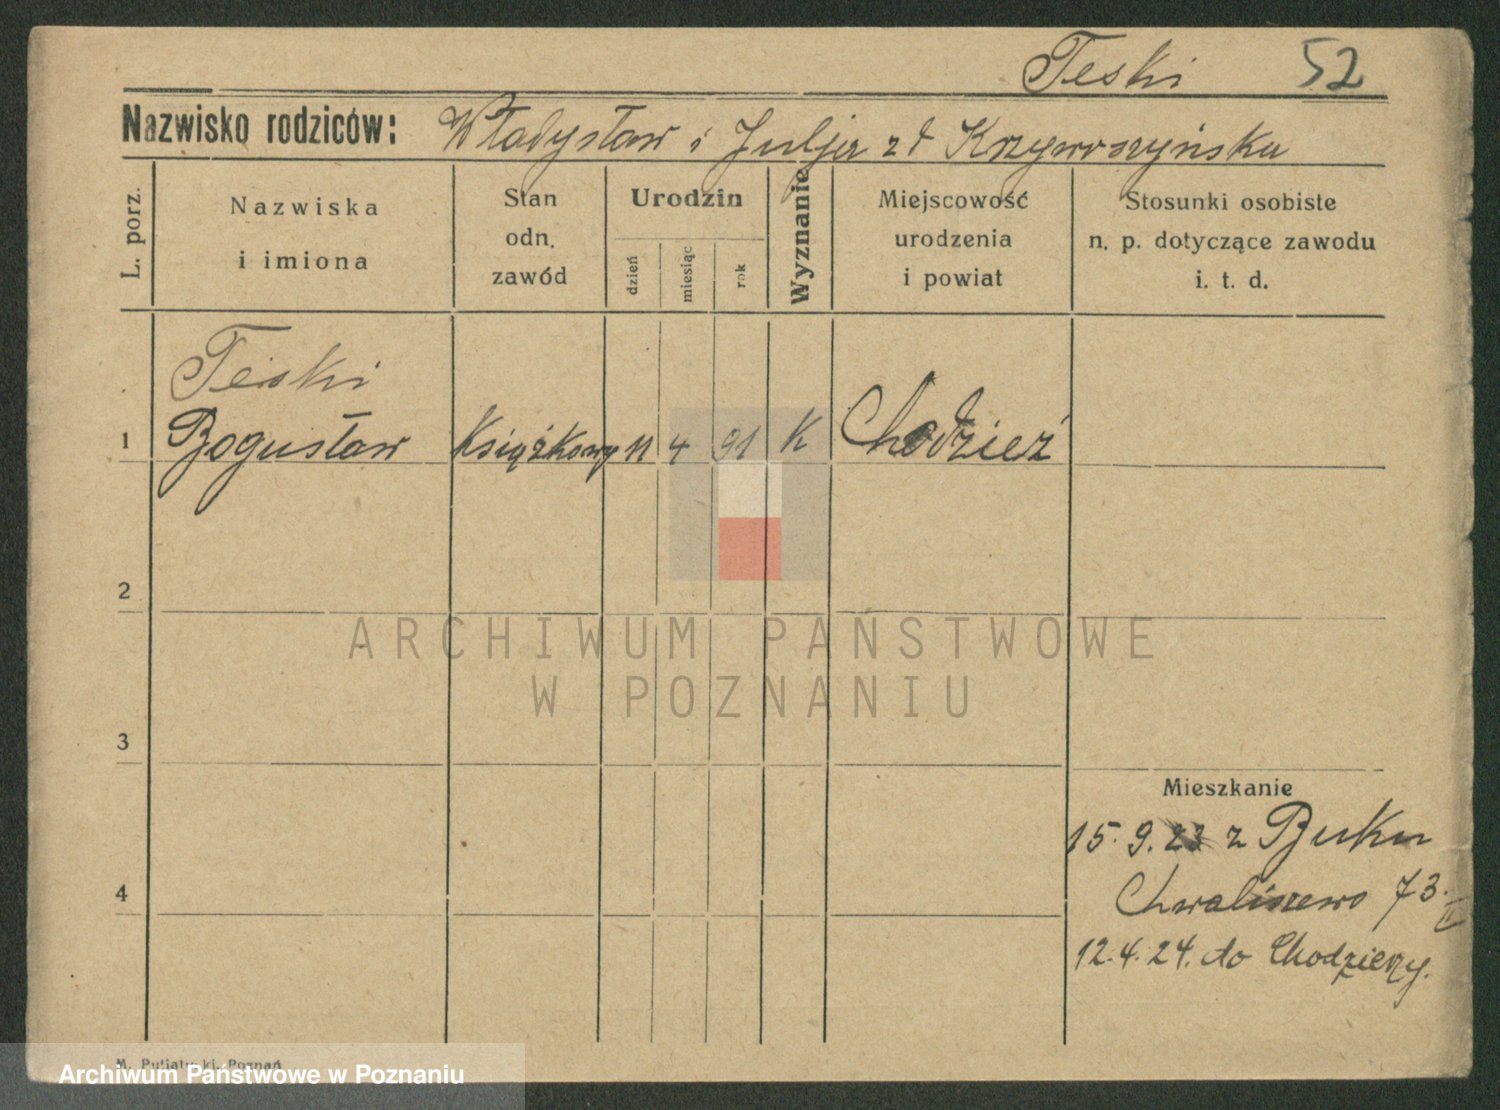 Teski 52
Nazwisko rodziców: Władysław i Julja zd Krzywoszyńska
L. porz.
Nazwiska
i imiona
Stan
odn.
zawód
Urodzin
dzień
miesiąc
rok
Wyznanie
Miejscowość
urodzenia
i powiat
Stosunki osobiste
n. p. dotyczące zawodu
i. t. d.
Teski
1 Bogusław Książkowy 11 4 91 K Chodzież
2
3
4
Mieszkanie
15. 9. 23 z Buku
Chwaliszewo 73.
12. 4. 24. do Chodzieży.
ARCHIWUM PAŃSTWOWE
W POZNANIU
M. Putiatycki, Poznań
Archiwum Państwowe w Poznaniu